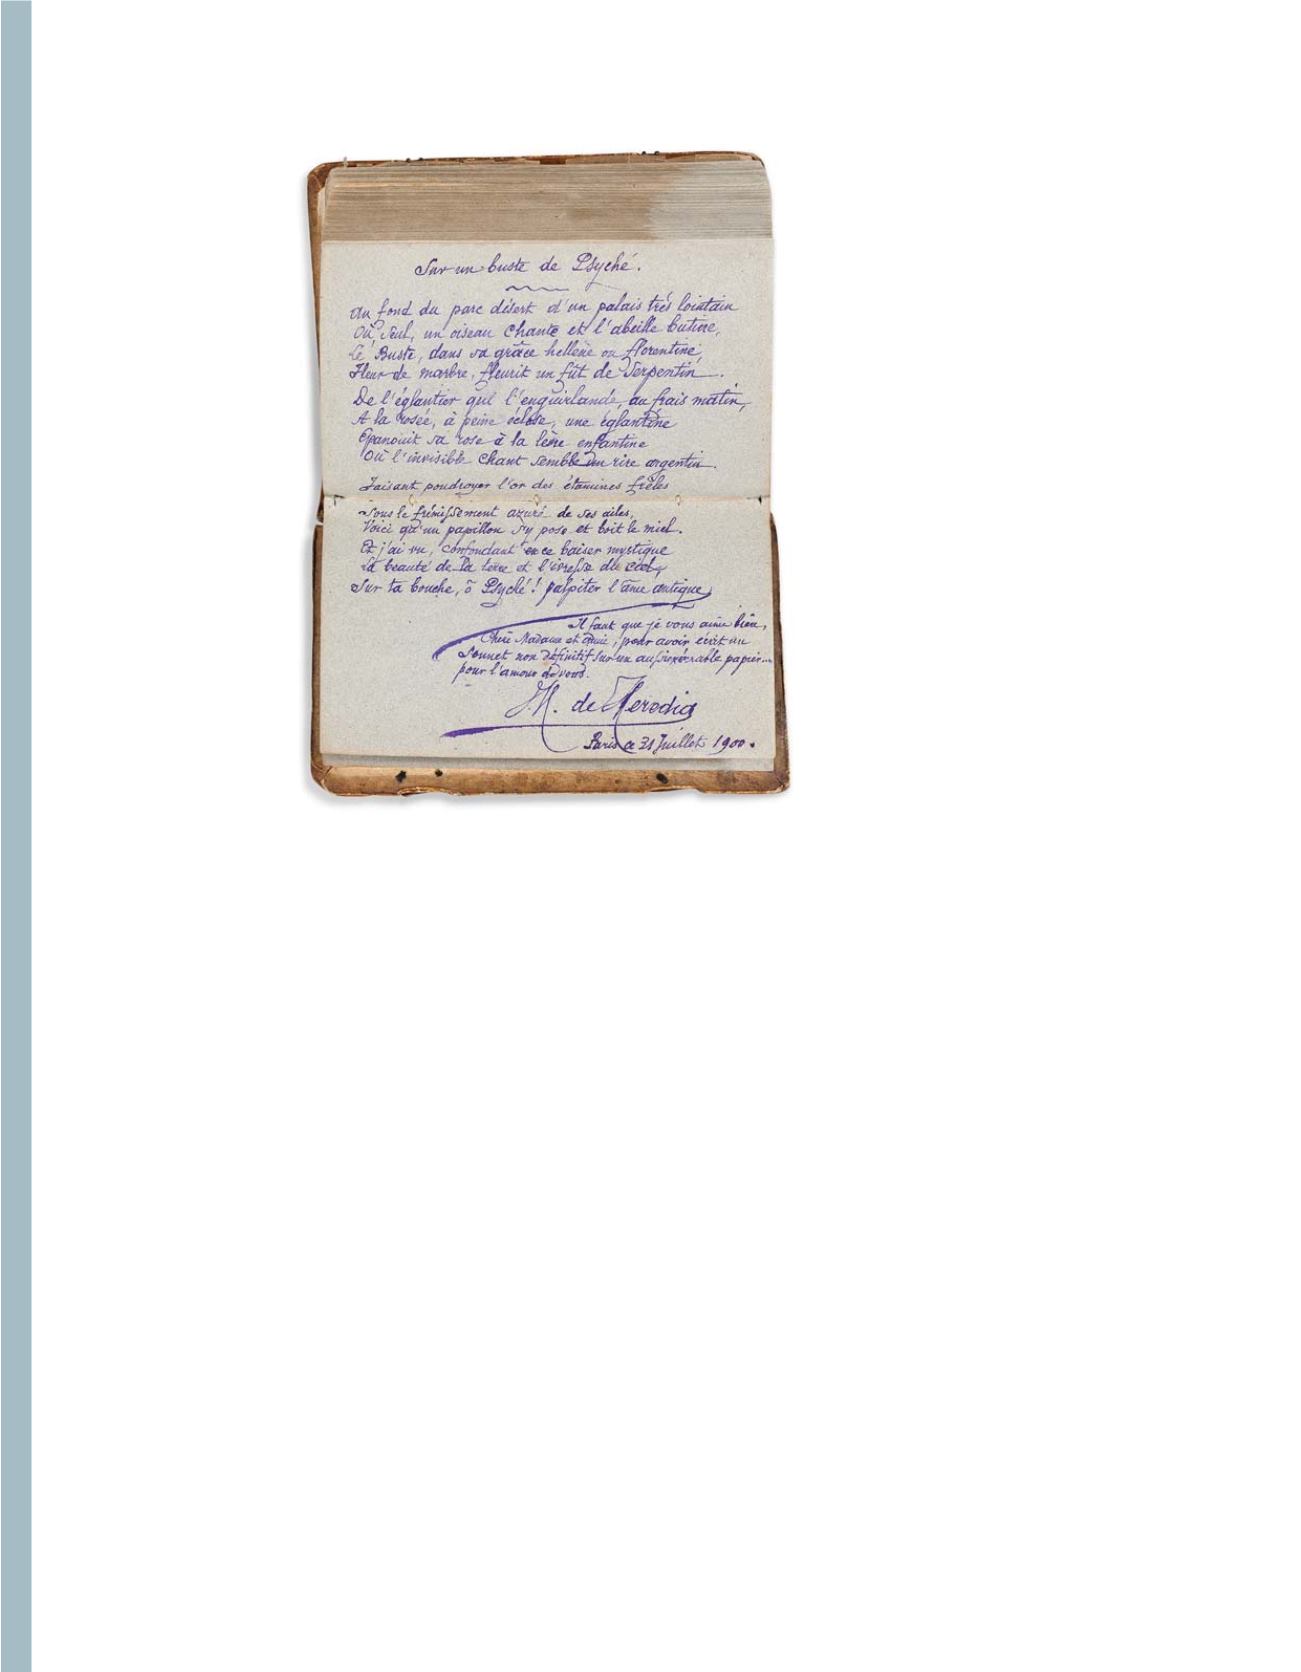 Sur un buste de Psyché.
Au fond du parc désert d'un palais très lointain
Où, seul, un oiseau chante et l'abeille butine,
Le Buste, dans sa grâce hellène ou florentine,
Fleur de marbre, fleurit un fût de Serpentin.
De l'églantier qui l'enguirlande, au frais matin,
A la rosée, à peine éclose, une églantine
Epanouit sa rose à la lèvre enfantine
Où l'invisible chant semble un rire argentin.
Faisant poudroyer l'or des étamines frêles
Sous le frémissement azuré de ses ailes,
Voici qu'un papillon s'y pose et boit le miel.
Et j'ai vu, confondant en ce baiser mystique
La beauté de la terre et l'ivresse du ciel,
Sur ta bouche, ô Psyché! palpiter l'âme antique
Il faut que je vous aime bien,
Chère Madame et amie, pour avoir écrit un
Sonnet non définitif sur un aussi exécrable papier...
pour l'amour de vous.
JM. de Heredia
Paris ce 31 Juillet 1900.